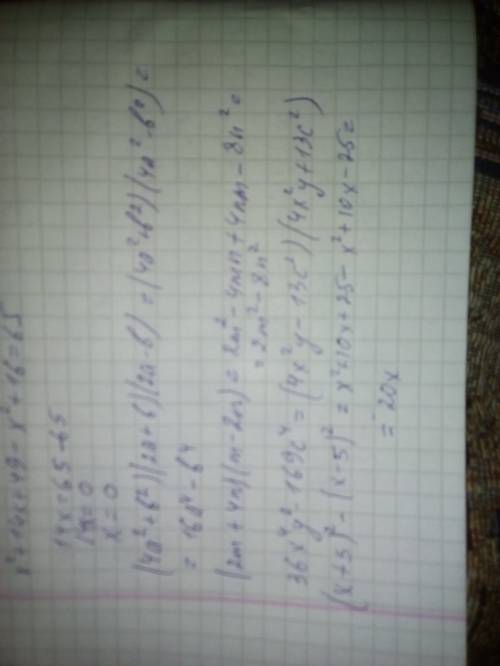 x² + 14x + 49 - x² + 16 = 65
14x = 65 - 65
14x = 0
x = 0
(4a² + b²)(2a + b)(2a - b) = (4a² + b²)(4a² - b²) =
= 16a⁴ - b⁴
(2m + 4n)(m - 2n) = 2m² - 4mn + 4nm - 8n² =
= 2m² - 8n²
36x⁴y² - 169c⁴ = (4x²y - 13c²)(4x²y + 13c²)
(x + 5)² - (x - 5)² = x² + 10x + 25 - x² + 10x - 25 =
= 20x